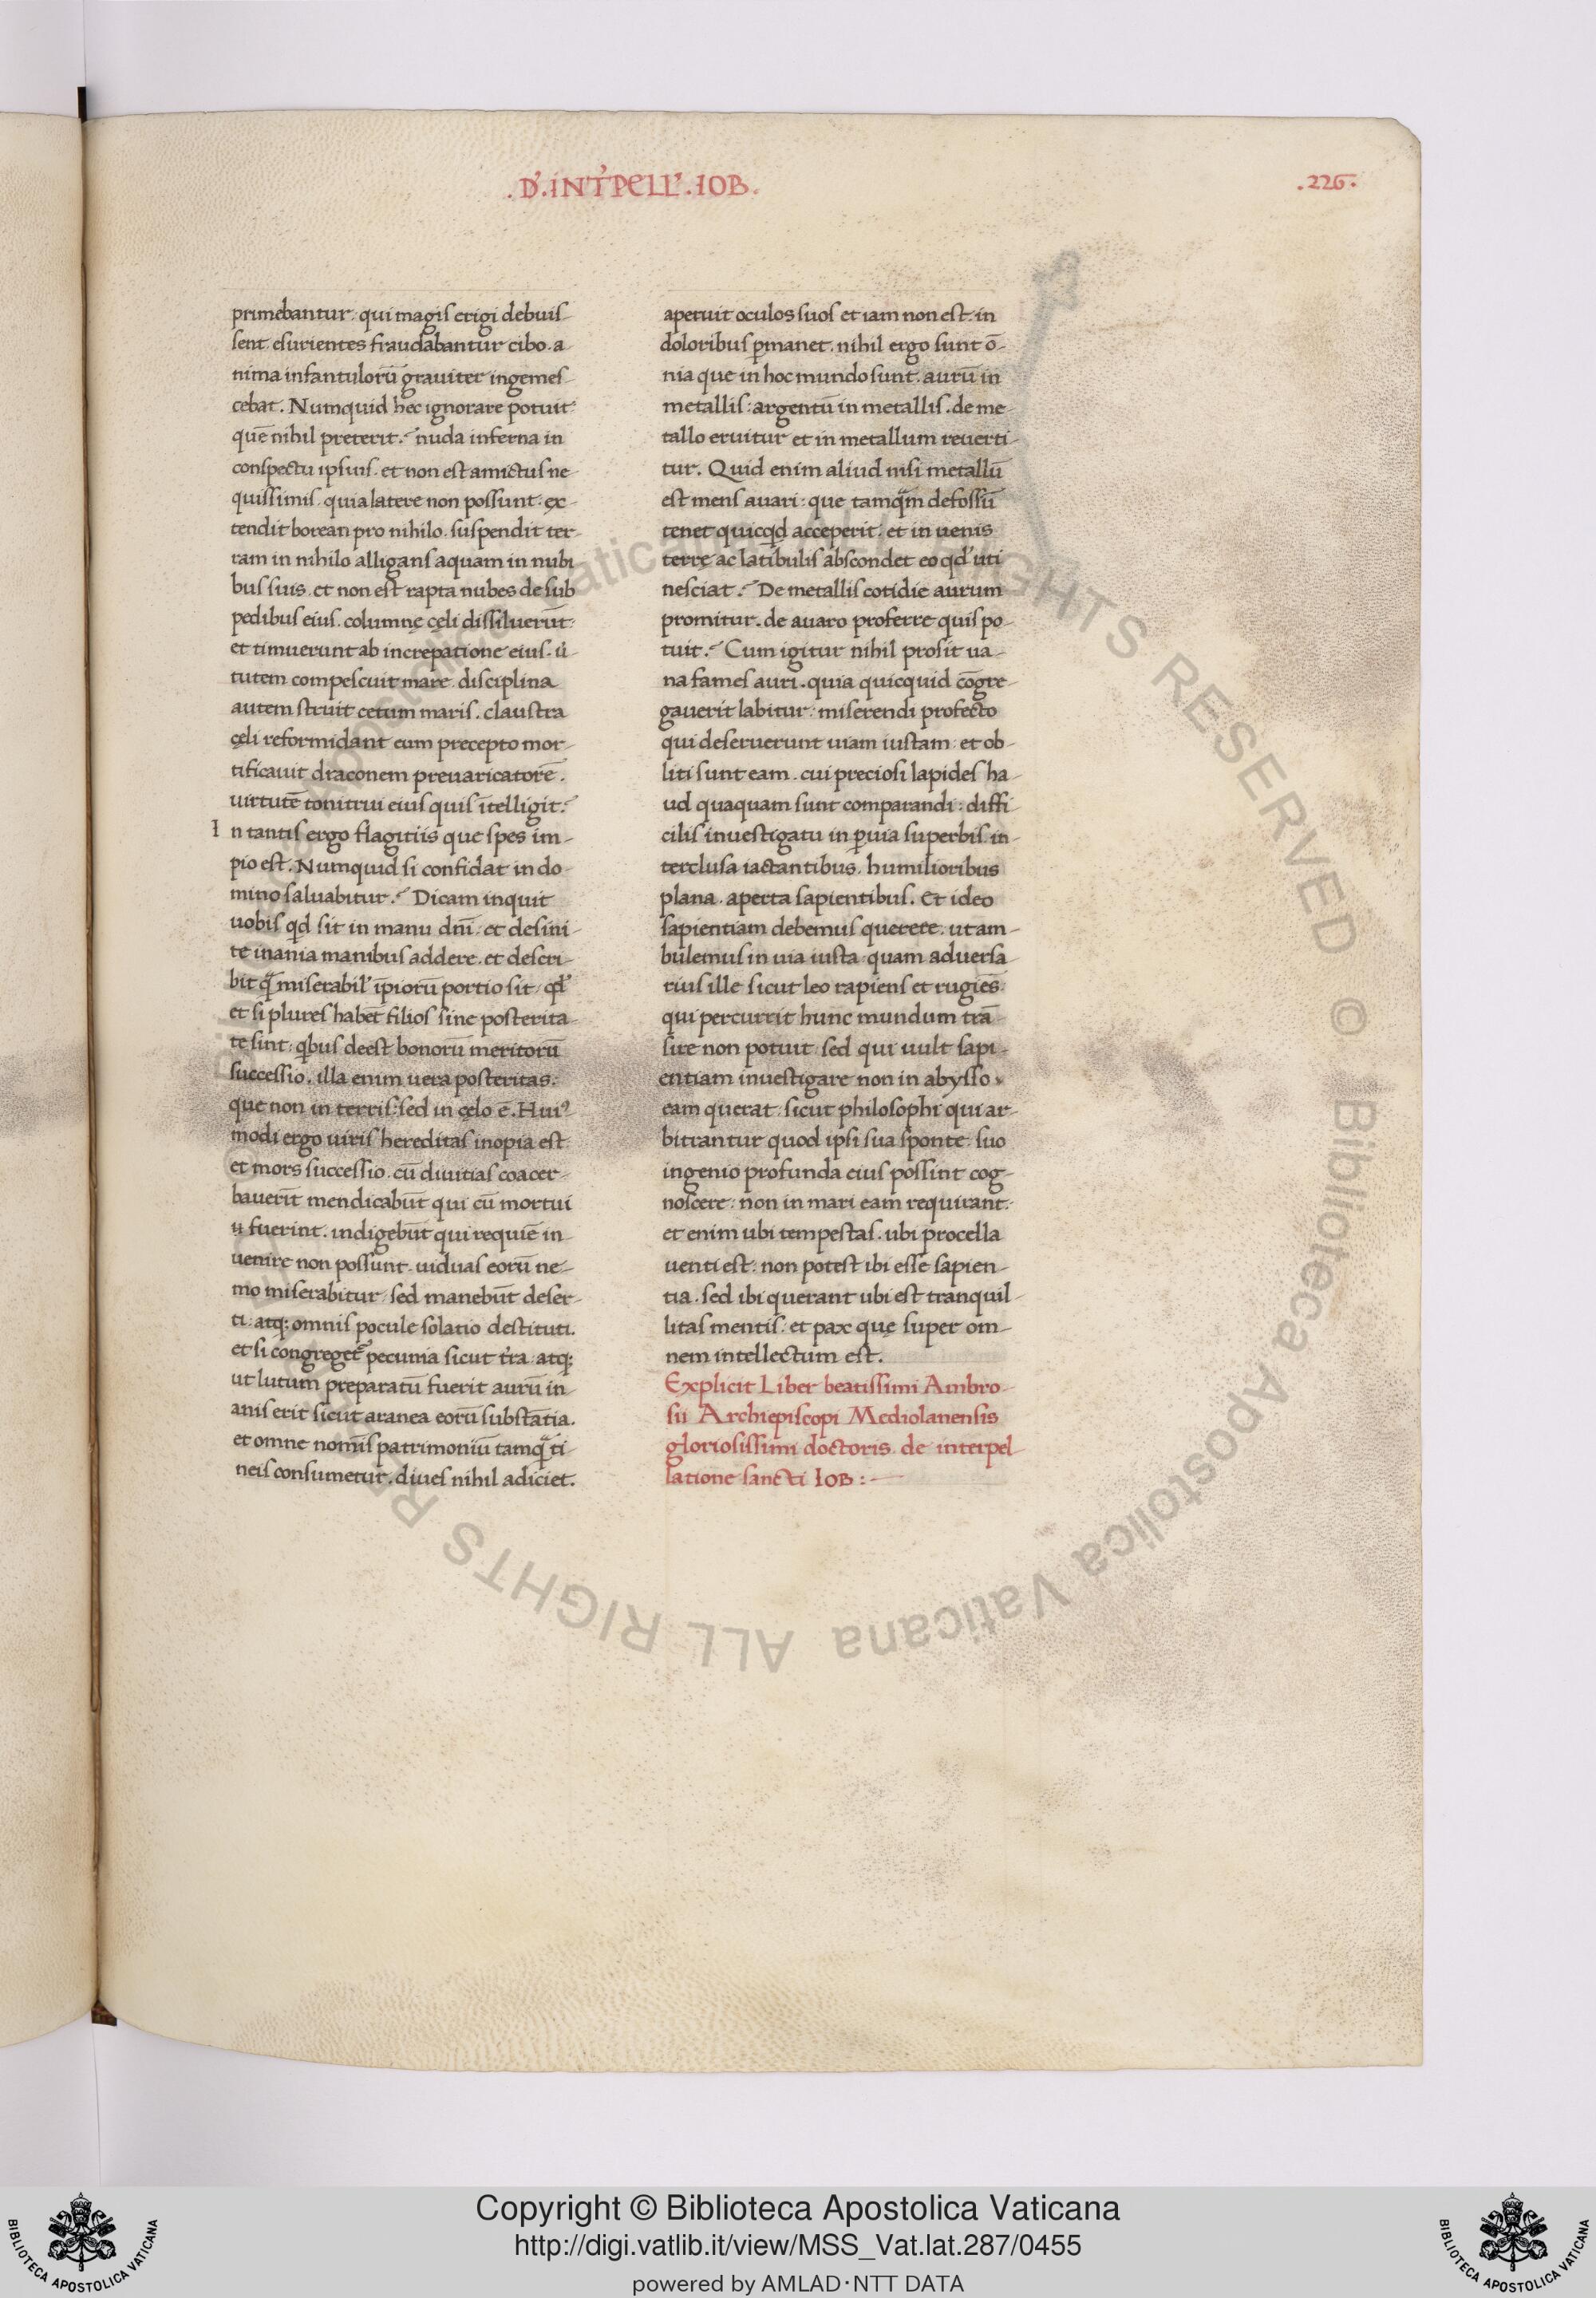 .D̓.INT̓PELL̓.IOB.
.226.
primebantur. qui magis erigi debuis-
sent. esurientes fraudabantur cibo. a
nima infantulorū grauiter ingemes-
cebat. Numquid hec ignorare potuit
quē nihil preterit. nuda inferna in
conspectu ipsius. et non est amictus ne-
quissimis. quia latere non possunt. ex-
tendit borean pro nihilo. suspendit ter-
ram in nihilo alligans aquam in nubi
bus suis. et non est rapta nubes de sub
pedibus eius. columnę cęli dissiluerūt.
et timuerunt ab increpatione eius. u̓-
tutem compescuit mare. disciplina
autem struit cetum maris. claustra
cęli reformidant eum precepto mor-
tificauit draconem preuaricatorē.
uirtutē tonitrui eius quis ītelligit.
In tantis ergo flagitiis que spes im-
pio est. Numquid si confidat in do-
mino saluabitur. Dicam inquit
uobis qd sit in manu dnī. et desini-
te inania manibus addere. et descri-
bit q̄ miserabil̓ īpiorū portio sit. qd̓
et si plures habēt filios sine posterita-
te sint. qbus deest bonorū meritorū
successio. illa enim uera posteritas.
que non in terris: sed in cęlo ē. Hui⁹
modi ergo uiris hereditas inopia est
et mors successio. cū diuitias coacer-
bauerīt mendicabūt qui cū mortui
u fuerint. indigebūt qui requiē in-
uenire non possunt. uiduas eorū ne-
mo miserabitur. sed manebūt deser-
ti. atq; omnis pocule solatio destituti.
et si congreget᷑ pecunia sicut t̓ra. atq;
ut lutum preparatū fuerit aurū in-
anis erit sicut aranea eorū substātia.
et omne nomīs patrimoniū tamq̄ ti-
neis consumetur. diues nihil adiciet.
aperuit oculos suos et iam non est. in
doloribus ꝑmanet. nihil ergo sunt ō-
nia que in hoc mundo sunt. aurū in
metallis: argentū in metallis. de me-
tallo eruitur et in metallum reuerti-
tur. Quid enim aliud nisi metallū
est mens auari: que tamq̄m defossū
tenet quicqd acceperit. et in uenis
terrę ac latibulis abscondet eo qd̓ uti
nesciat. De metallis cotidie aurum
promitur. de auaro proferre quis po-
tuit. Cum igitur nihil prosit ua-
na fames auri. quia quicquid cōgre-
gauerit labitur: miserendi profecto
qui deseruerunt uiam iustam. et ob-
liti sunt eam. cui preciosi lapides ha-
ud quaquam sunt comparandi: diffi-
cilis inuestigatu in ꝑuia superbis. in-
terclusa iactantibus. humilioribus
plana. aperta sapientibus. Et ideo
sapientiam debemus querere. ut am-
bulemus in uia iusta. quam aduersa-
rius ille sicut leo rapiens et rugiēs.
qui percurrit hunc mundum trā-
sire non potuit. sed qui uult sapi-
entiam inuestigare non in abysso.
eam querat. sicut philosophi qui ar-
bitrantur quod ipsi sua sponte. suo
ingenio profunda eius possint cog-
noscere. non in mari eam requirant.
et enim ubi tempestas. ubi procella
uenti est: non potest ibi esse sapien-
tia. sed ibi querant ubi est tranquil-
litas mentis. et pax quę super om-
nem intellectum est.
Explicit Liber beatissimi Ambro-
sii Archiepiscopi Mediolanensis
gloriosissimi doctoris. de interpel-
latione sancti Iob:-
© Biblioteca Apostolica Vaticana ALL RIGHTS RESERVED © Biblioteca Apostolica Vaticana ALL RIGHTS RESERVED
Copyright © Biblioteca Apostolica Vaticana
http://digi.vatlib.it/view/MSS_Vat.lat.287/0455
powered by AMLAD·NTT DATA
BIBLIOTECA APOSTOLICA VATICANA
BIBLIOTECA APOSTOLICA VATICANA